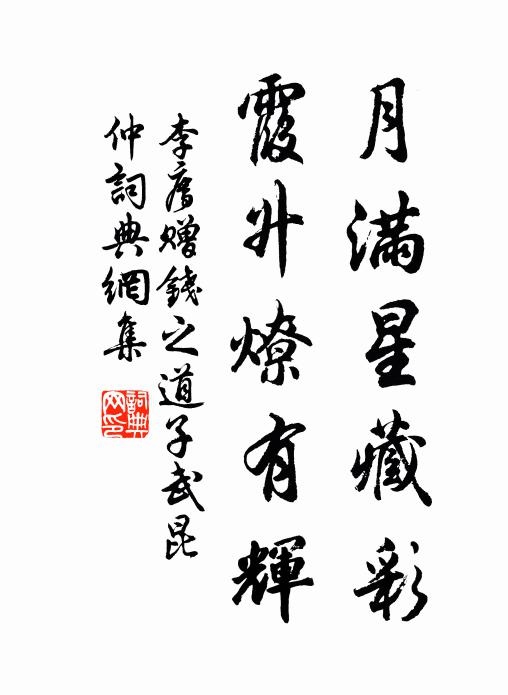 月滿星藏彩
霞升燎有輝
李廌贈錢之道子武昆
仲詞典網集
詞典
网印